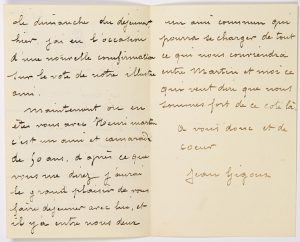 le dimanche du déjeuner
hier j'ai eu l'occasion
d'une nouvelle confirmation
sur le vote de notre illustre
ami.
maintenant ou en
êtes vous avec Henri martin
c'est un ami et camarade
de 50 ans, d'après ce que
vous me direz j'aurai
le grand plaisir de vous
faire dejeuner avec lui, et
il y a entre nous deux
un ami commun qui
pourra se charger de tout
ce qui nous conviendra
entre Martin et moi ce
qui veut dire que nous
sommes fort de ce coté là
a vous donc et de
coeur
Jean Gigoux